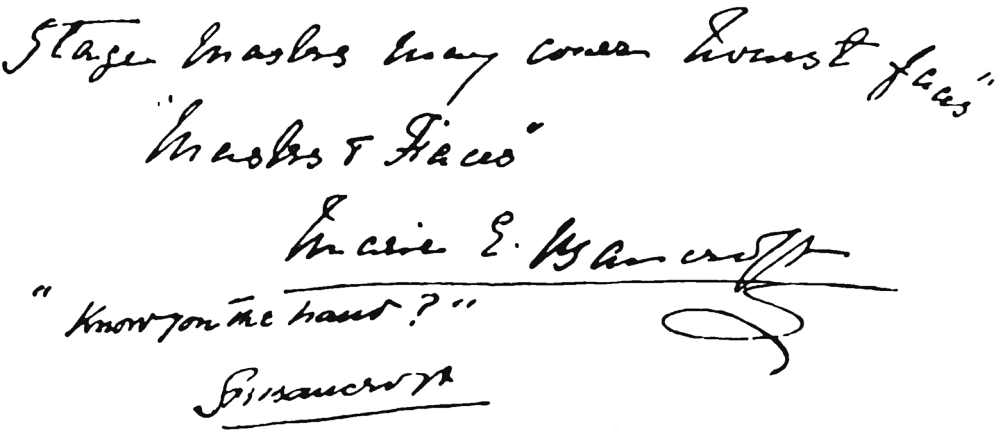 Stage Masks may cover honest faces"
"Masks & Faces"
Marie E. Bancroft
"Know you the hand?"
SBBancroft